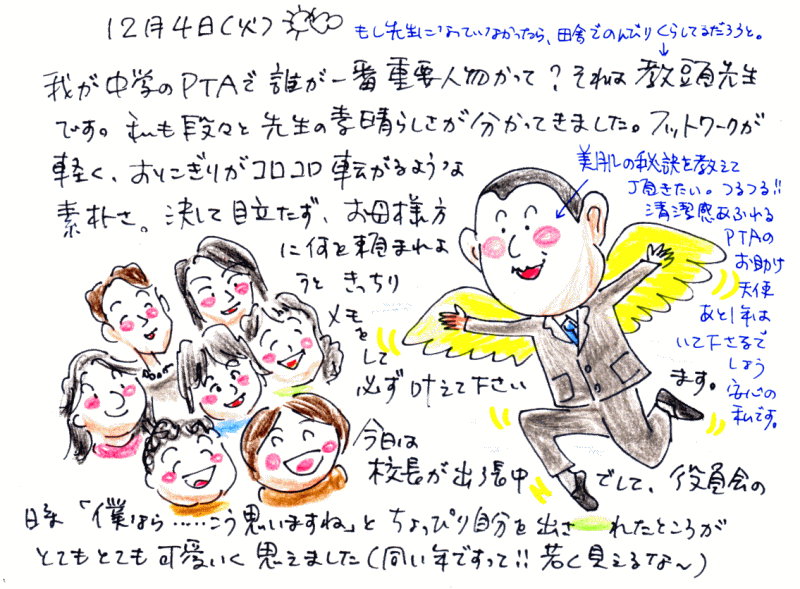 12月4日(火)
もし先生になっていなかったら、田舎でのんびりくらしてるだろうと。
我が中学のPTAで誰が一番重要人物かって？それは教頭先生
です。私も段々と先生の素晴らしさが分かってきました。フットワークが
軽く、おにぎりがコロコロ転がるような
素朴さ。決して目立たず、お母様方
に何を頼まれよ
うと きっちり
メモ
を
して
必ず叶えて下さい
ます。
美肌の秘訣を教えて
頂きたい。つるつる!!
清潔感あふれる
PTAの
お助け
天使
あと1年は
いて下さるで
しょう
安心の
私です。
今日は
校長が出張中でして、役員会の
時「僕なら……こう思いますね」とちょっぴり自分を出されたところが
とてもとても可愛いく思えました(同い年ですって!!若く見えるな～)